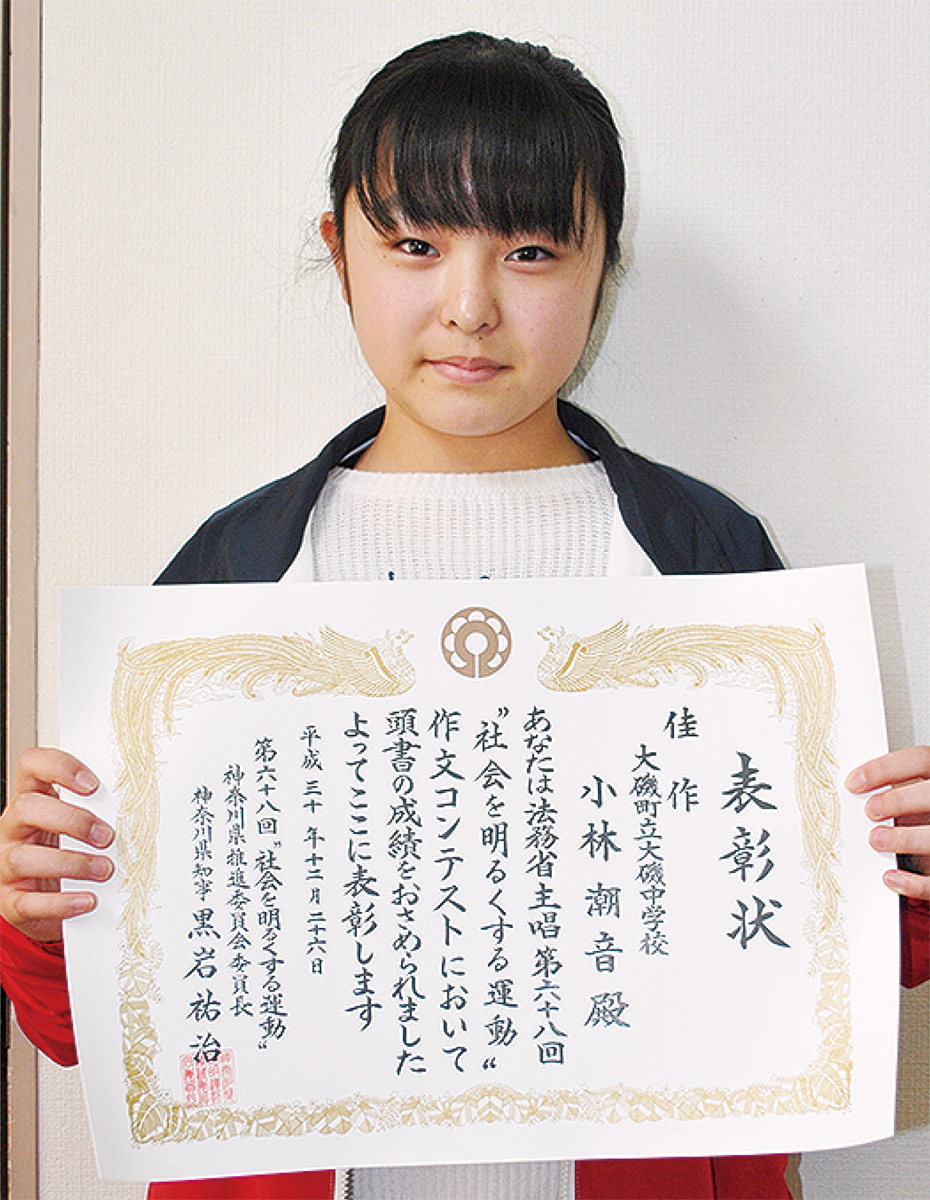 表彰状
佳作
大磯町立大磯中学校
小林潮音殿
あなたは法務省主唱第六十八回
”社会を明るくする運動“
作文コンテストにおいて
頭書の成績をおさめられました
よってここに表彰します
平成三十年十二月二十六日
第六十八回”社会を明るくする運動“
神奈川県推進委員会委員長
神奈川県知事 黒岩祐治